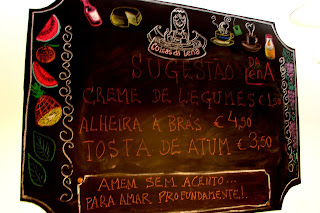 Coisas da Lena
SUGESTÃO DA LENA
CREME DE LEGUMES €1,50
ALHEIRA À BRÁS €4,50
TOSTA DE ATUM €3,50
AMEM SEM ACENTO...
PARA AMAR PROFUNDAMENTE!.